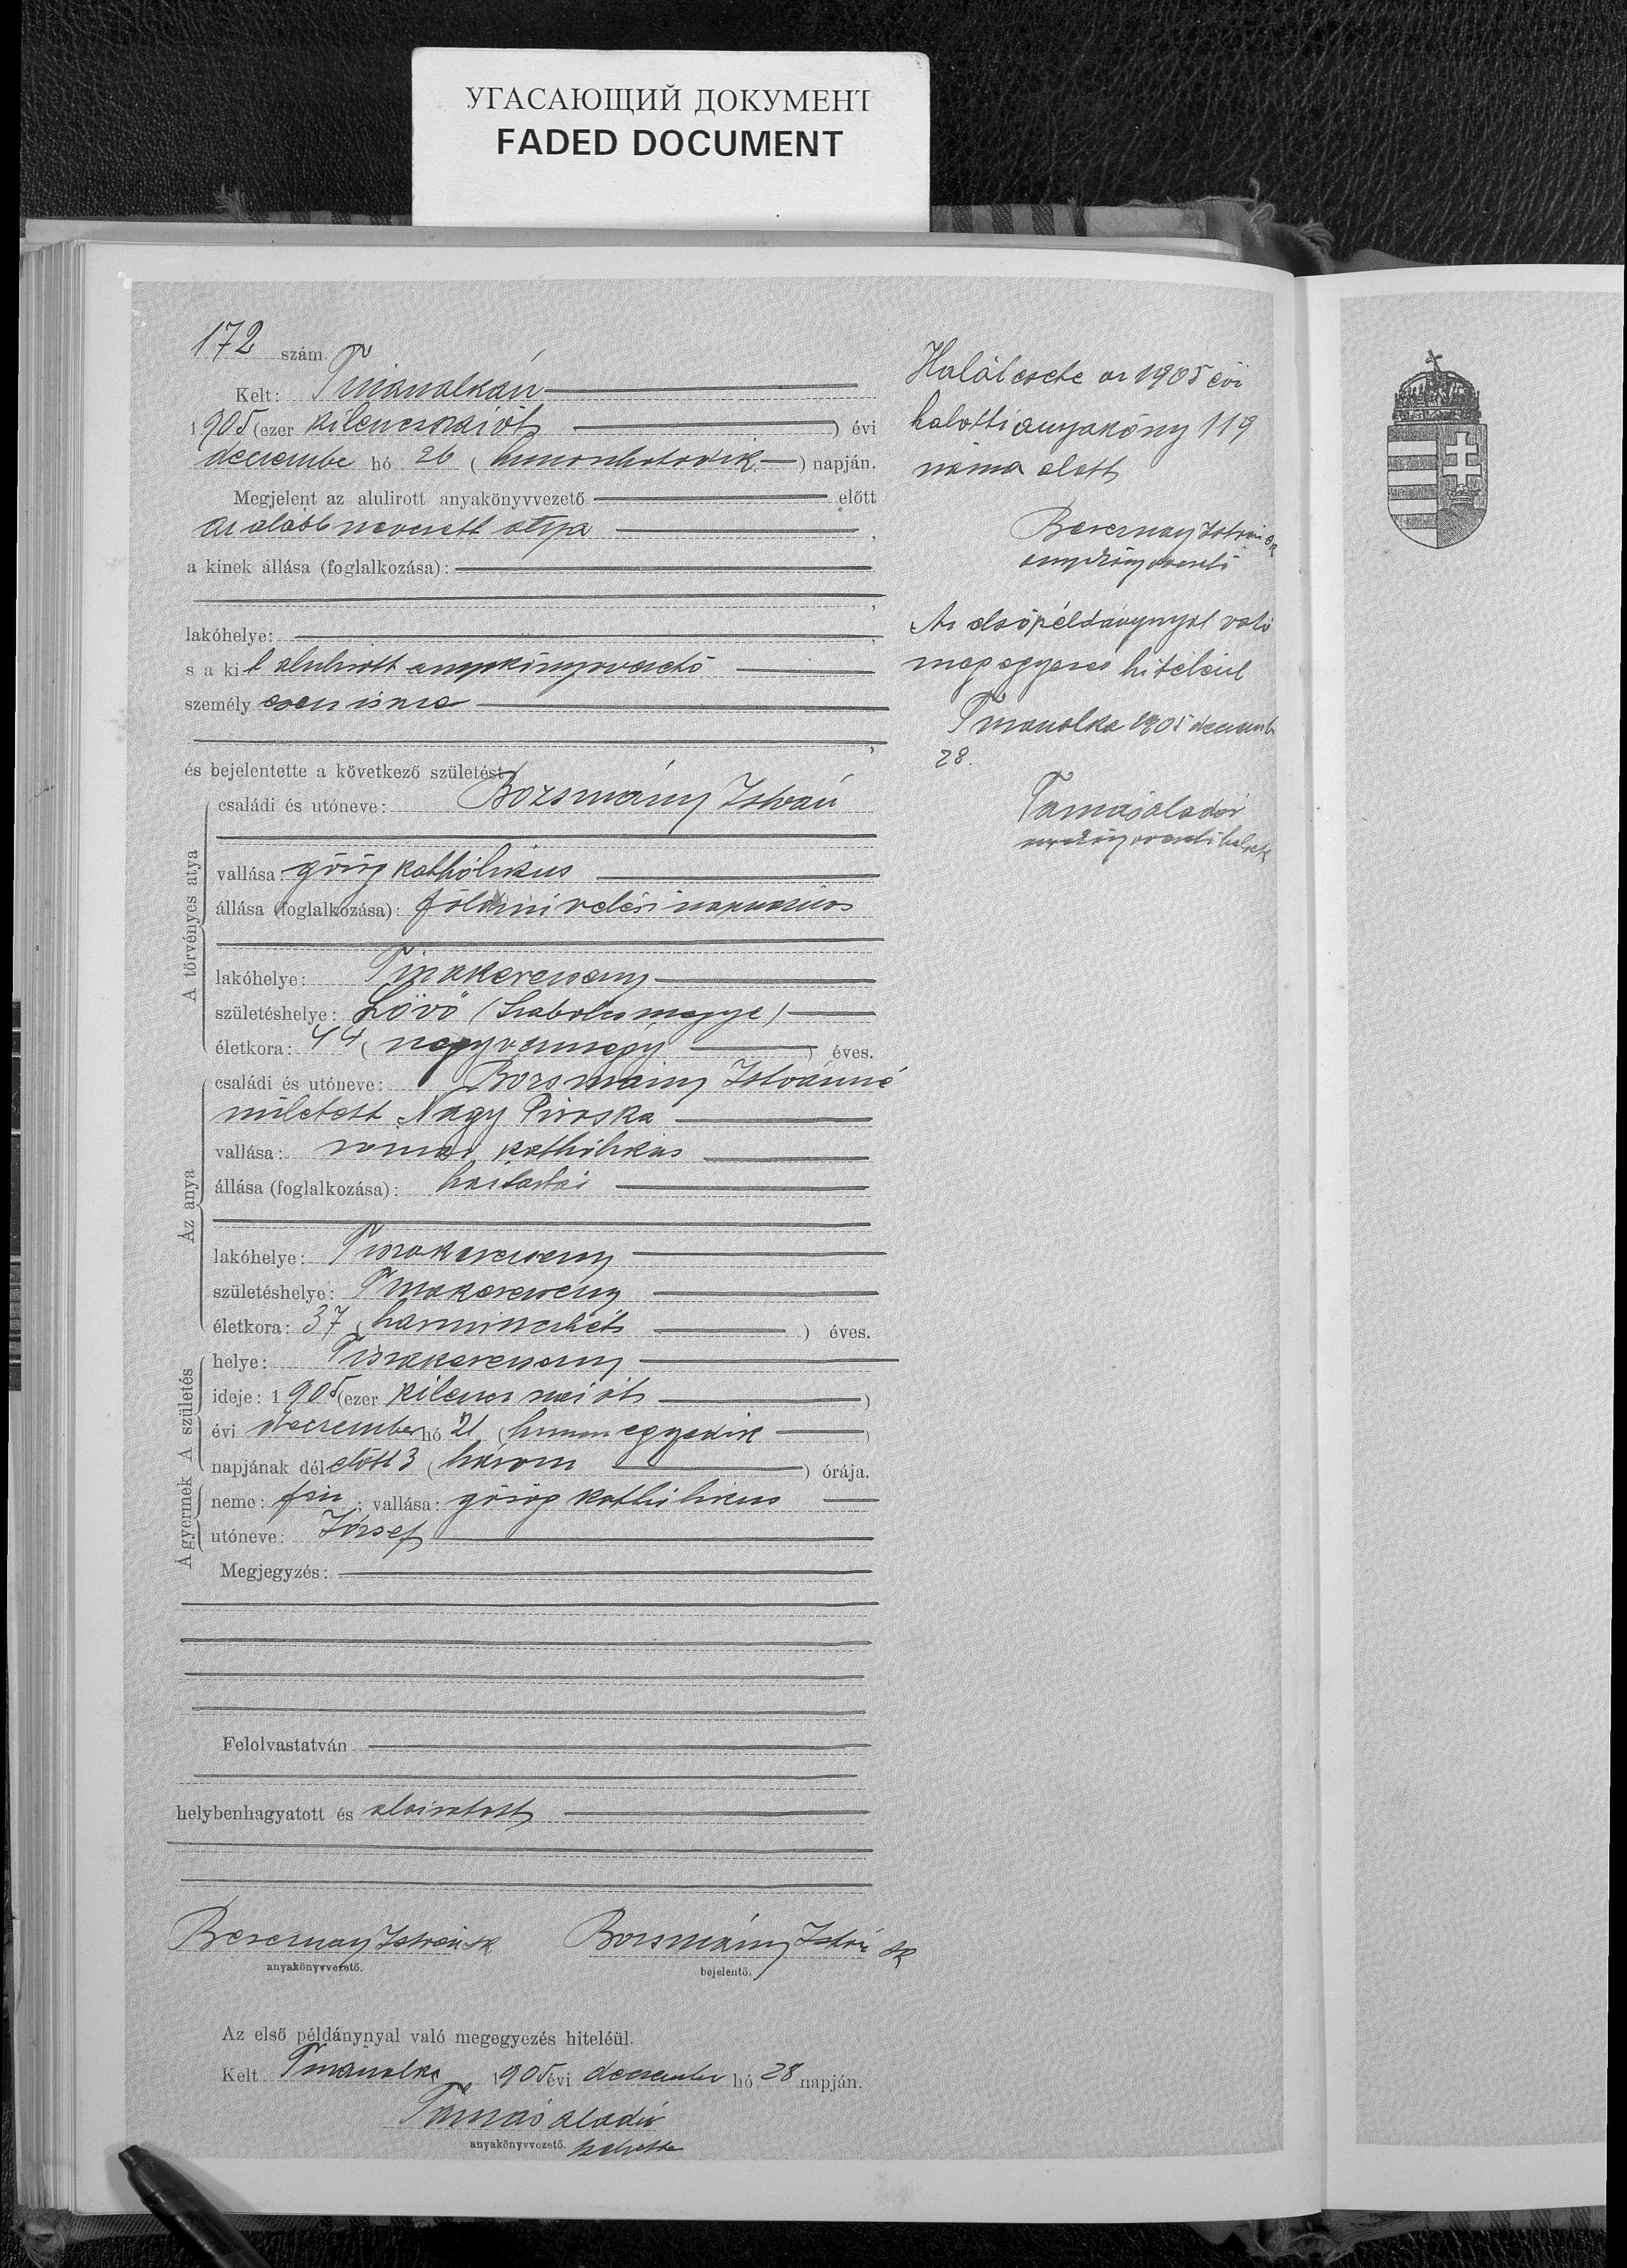 УГАСАЮЩИЙ ДОКУМЕНТ
FADED DOCUMENT
172 szám.
Kelt: Tiszasalkán
1905 (ezer kilencszázöt) évi
decembe hó 26 (huszonhatodik) napján.
Megjelent az alulirott anyakönyvvezető előtt
az alább nevezett atya,
a kinek állása (foglalkozása):
,
lakóhelye: ,
s a kit alulirott anyakönyvvezető
személyesen ismer
,
és bejelentette a következő születést
A törvényes atya
családi és utóneve: Bozsmány István
vallása: görög katholikus
állása (foglalkozása): földmivelési napszámos
lakóhelye: Tiszakerecseny
születéshelye: Lövő (Szabolcsmegye)
életkora: 44 (negyvennégy) éves.
Az anya
családi és utóneve: Bozsmány Istvánné
született Nagy Piroska
vallása: római katholikus
állása (foglalkozása): háztartási
lakóhelye: Tiszakerecseny
születéshelye: Tiszakerecseny
életkora: 37 (harminczhét) éves.
A születés
helye: Tiszakerecseny
ideje: 1905 (ezer kilencz száz öt)
évi december hó 21 (huszonegyedik)
napjának délelőtt 3 (három) órája.
A gyermek
neme: fiu; vallása: görög katholikus
utóneve: József
Megjegyzés:
Felolvastatván
helybenhagyatott és aláiratott
Berecznay István sk Bozsmány István sk
anyakönyvvezető. bejelentő.
Az első példánynyal való megegyezés hiteléül.
Kelt Tiszasalka, 1905 évi december hó 28 napján.
Tamás Aladár
anyakönyvvezető. helyette
Halálesete az 1905 évi
halotti anyaköny 119
száma alatt
Berecznay István sk
anyakönyvvezető
Az elsőpéldánynyal való
megegyezés hiteléül
Tiszasalka 1905 decemb
28.
Tamás Aladár
anyakönyvvezető helyett